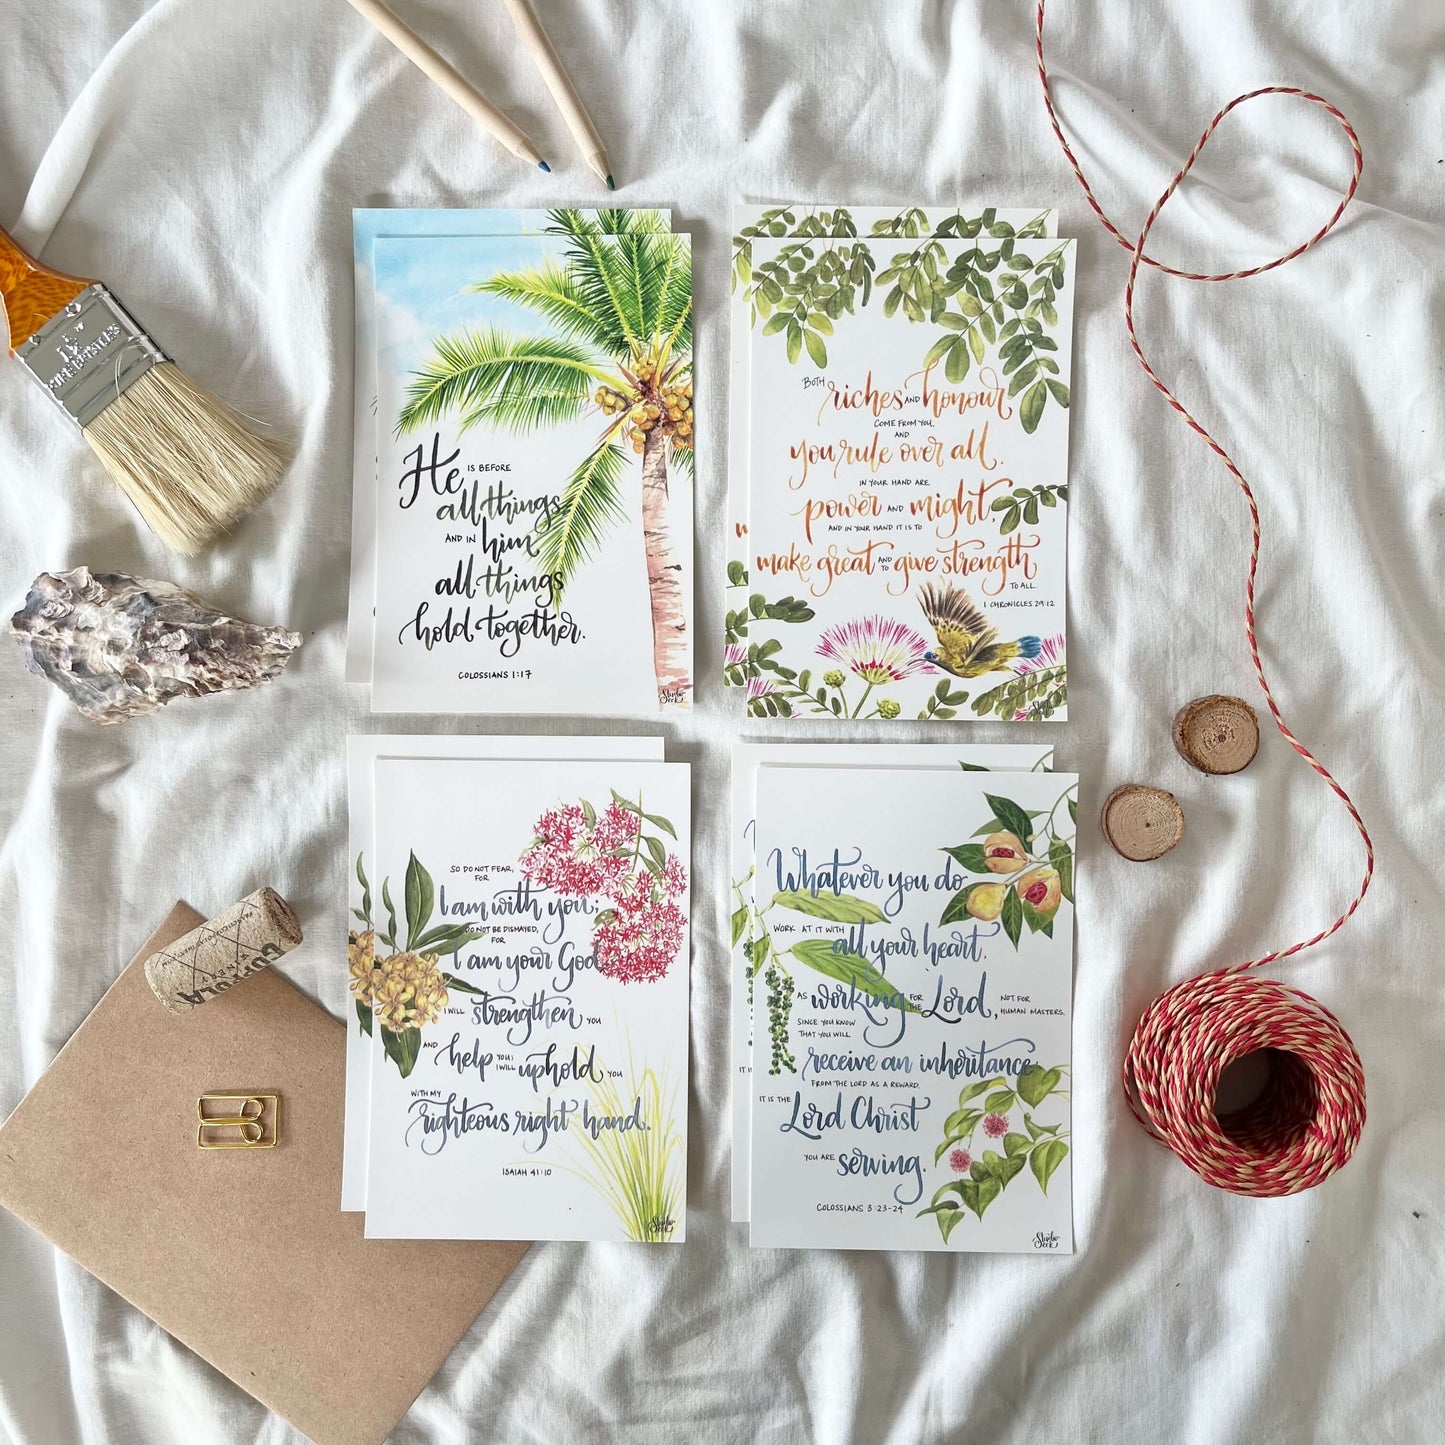 He IS BEFORE
all things
AND IN him
all things
hold together.
COLOSSIANS 1:17
Studio
Eck
BOTH riches AND honour
COME FROM YOU,
AND
you rule over all.
IN YOUR HAND ARE
power AND might,
AND IN YOUR HAND IT IS TO
make great AND TO give strength
TO ALL.
1 CHRONICLES 29:12
SO DO NOT FEAR,
FOR
I am with you;
DO NOT BE DISMAYED,
FOR
I am your God.
I WILL strengthen YOU
AND help YOU; I WILL uphold YOU
WITH MY
righteous right hand.
ISAIAH 41:10
Whatever you do,
WORK AT IT WITH
all your heart,
AS working FOR THE Lord, NOT FOR HUMAN MASTERS,
SINCE YOU KNOW
THAT YOU WILL
receive an inheritance
FROM THE LORD AS A REWARD.
IT IS THE
Lord Christ
YOU ARE serving.
COLOSSIANS 3:23-24